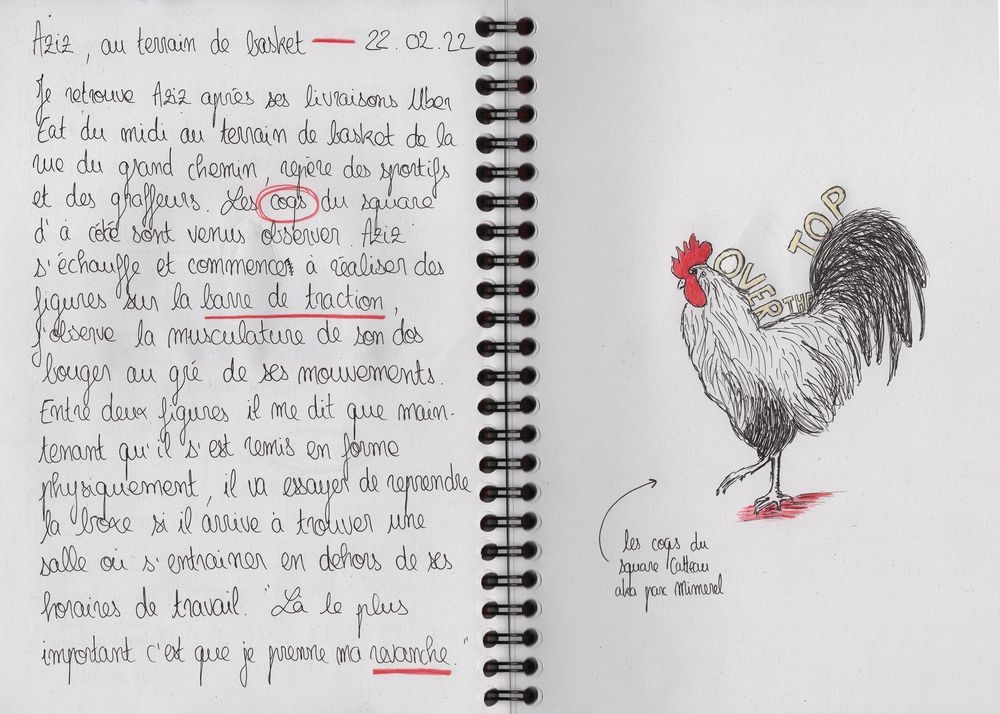 Aziz, au terrain de basket — 22.02.22
Je retrouve Aziz après ses livraisons Uber
Eat du midi au terrain de basket de la
rue du grand chemin, repère des sportifs
et des graffeurs. Les coqs du square
d'à côté sont venus observer. Aziz
s'échauffe et commence à réaliser des
figures sur la barre de traction,
j'observe la musculature de son dos
bouger au gré de ses mouvements.
Entre deux figures il me dit que main-
tenant qu'il s'est remis en forme
physiquement, il va essayer de reprendre
la boxe si il arrive à trouver une
salle où s'entrainer en dehors de ses
horaires de travail. "Là le plus
important c'est que je prenne ma revanche."
OVER THE TOP
les coqs du
square Catteau
aka parc Mimerel